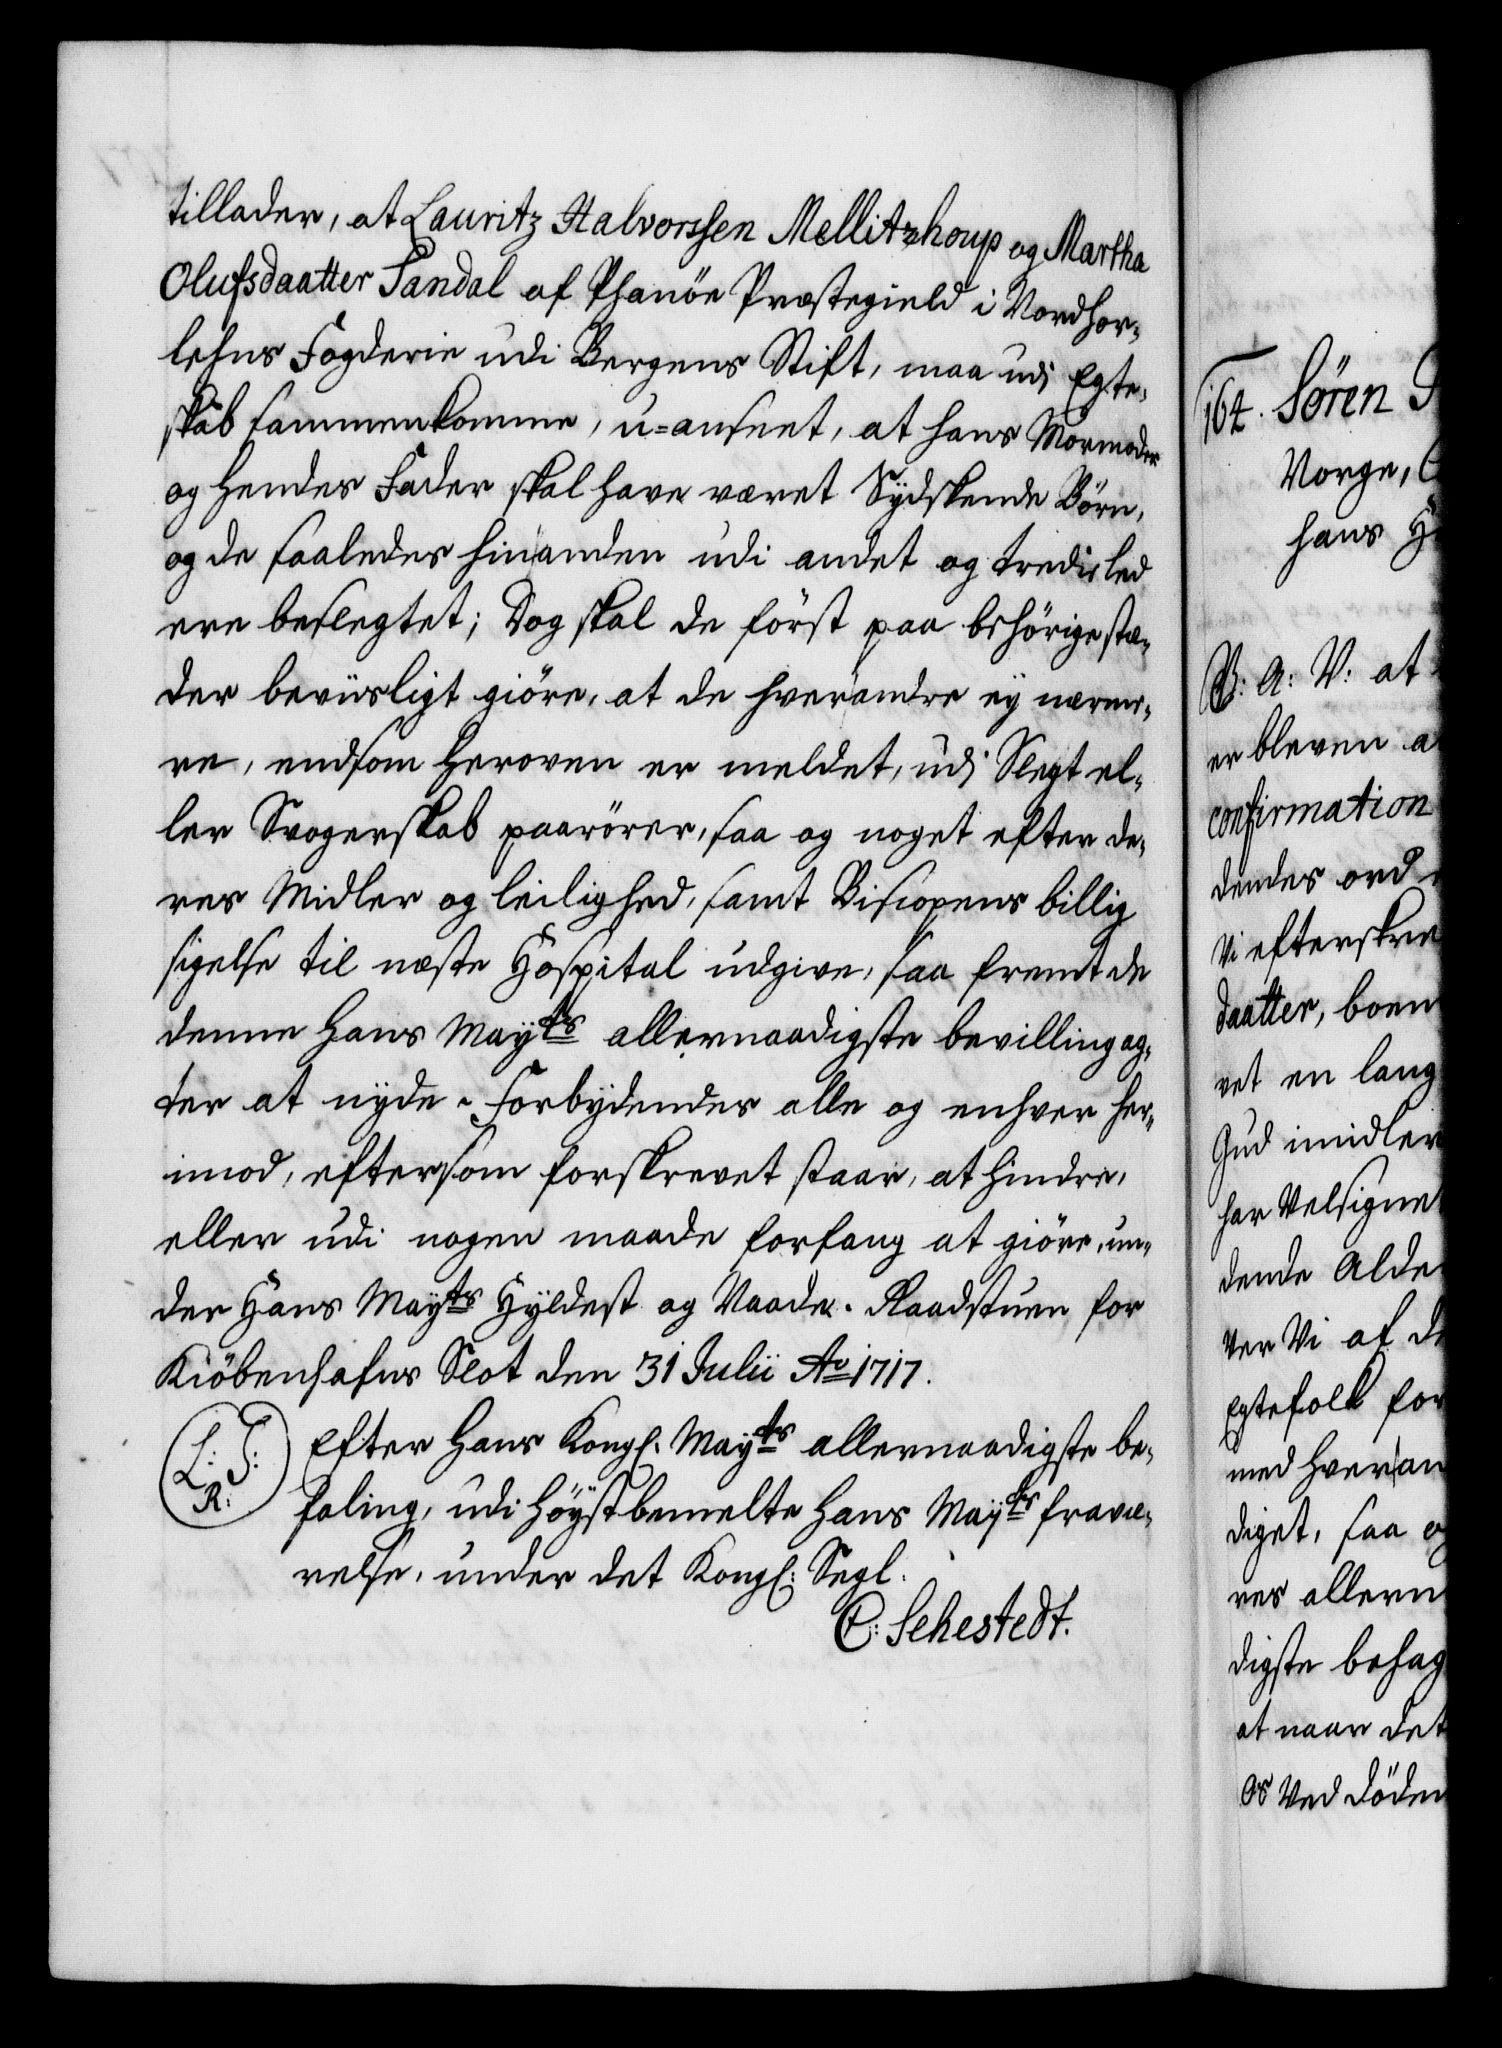 tillader, at Lauritz Halvorssen Mellitzhoup og Martha
Olufsdaatter Sandal af Phanöe Præstegield i Nordhor-
lehns Fogderie udi Bergens Stift, maa udi Egte-
skab sammenkomme, u-anseet, at hans Mormoder
og hendes Fader skal have været Sydskende Börn,
og de saaledes hinanden udi andet og tredie led
ere beslegtet; Dog skal de först paa behörige stæ-
der beviisligt giöre, at de hverandre ey nærme-
re, end som heroven er meldet, udi Slegt el-
ler Svogerskab paarörer, saa og noget efter de-
res Midler og leilighed, samt Biscopens billig
sigelse til næste Hospital udgive, saa fremt de
denne Hans Mayts allernaadigste bevilling ag-
ter at nyde. Forbydendes alle og enhver her-
imod, eftersom forskrevet staar, at hindre,
eller udi nogen maade forfang at giöre, un-
der Hans Mayts Hyldest og Naade. Raadstuen for
Kiöbenhafns Slot den 31 Julii Ao 1717.
L: S:
R:
Efter Hans Kongl. Mayts allernaadigste be-
faling, udi Höystbemelte Hans Mayts fravæ-
relse, under det Kongl: Segl.
C: Sehestedt.
164. Sören
Norge,
hans
V: A: V: at
er bleven
confirmation
dendes ord
Vi efterskre
daatter, boen
vet en lang
Gud imidler
har Velsigne
dende Alde
ver Vi af
Egtefolk for
med hveran
diget, saa
res allern
digste behag
at naar det
Os Ved döden